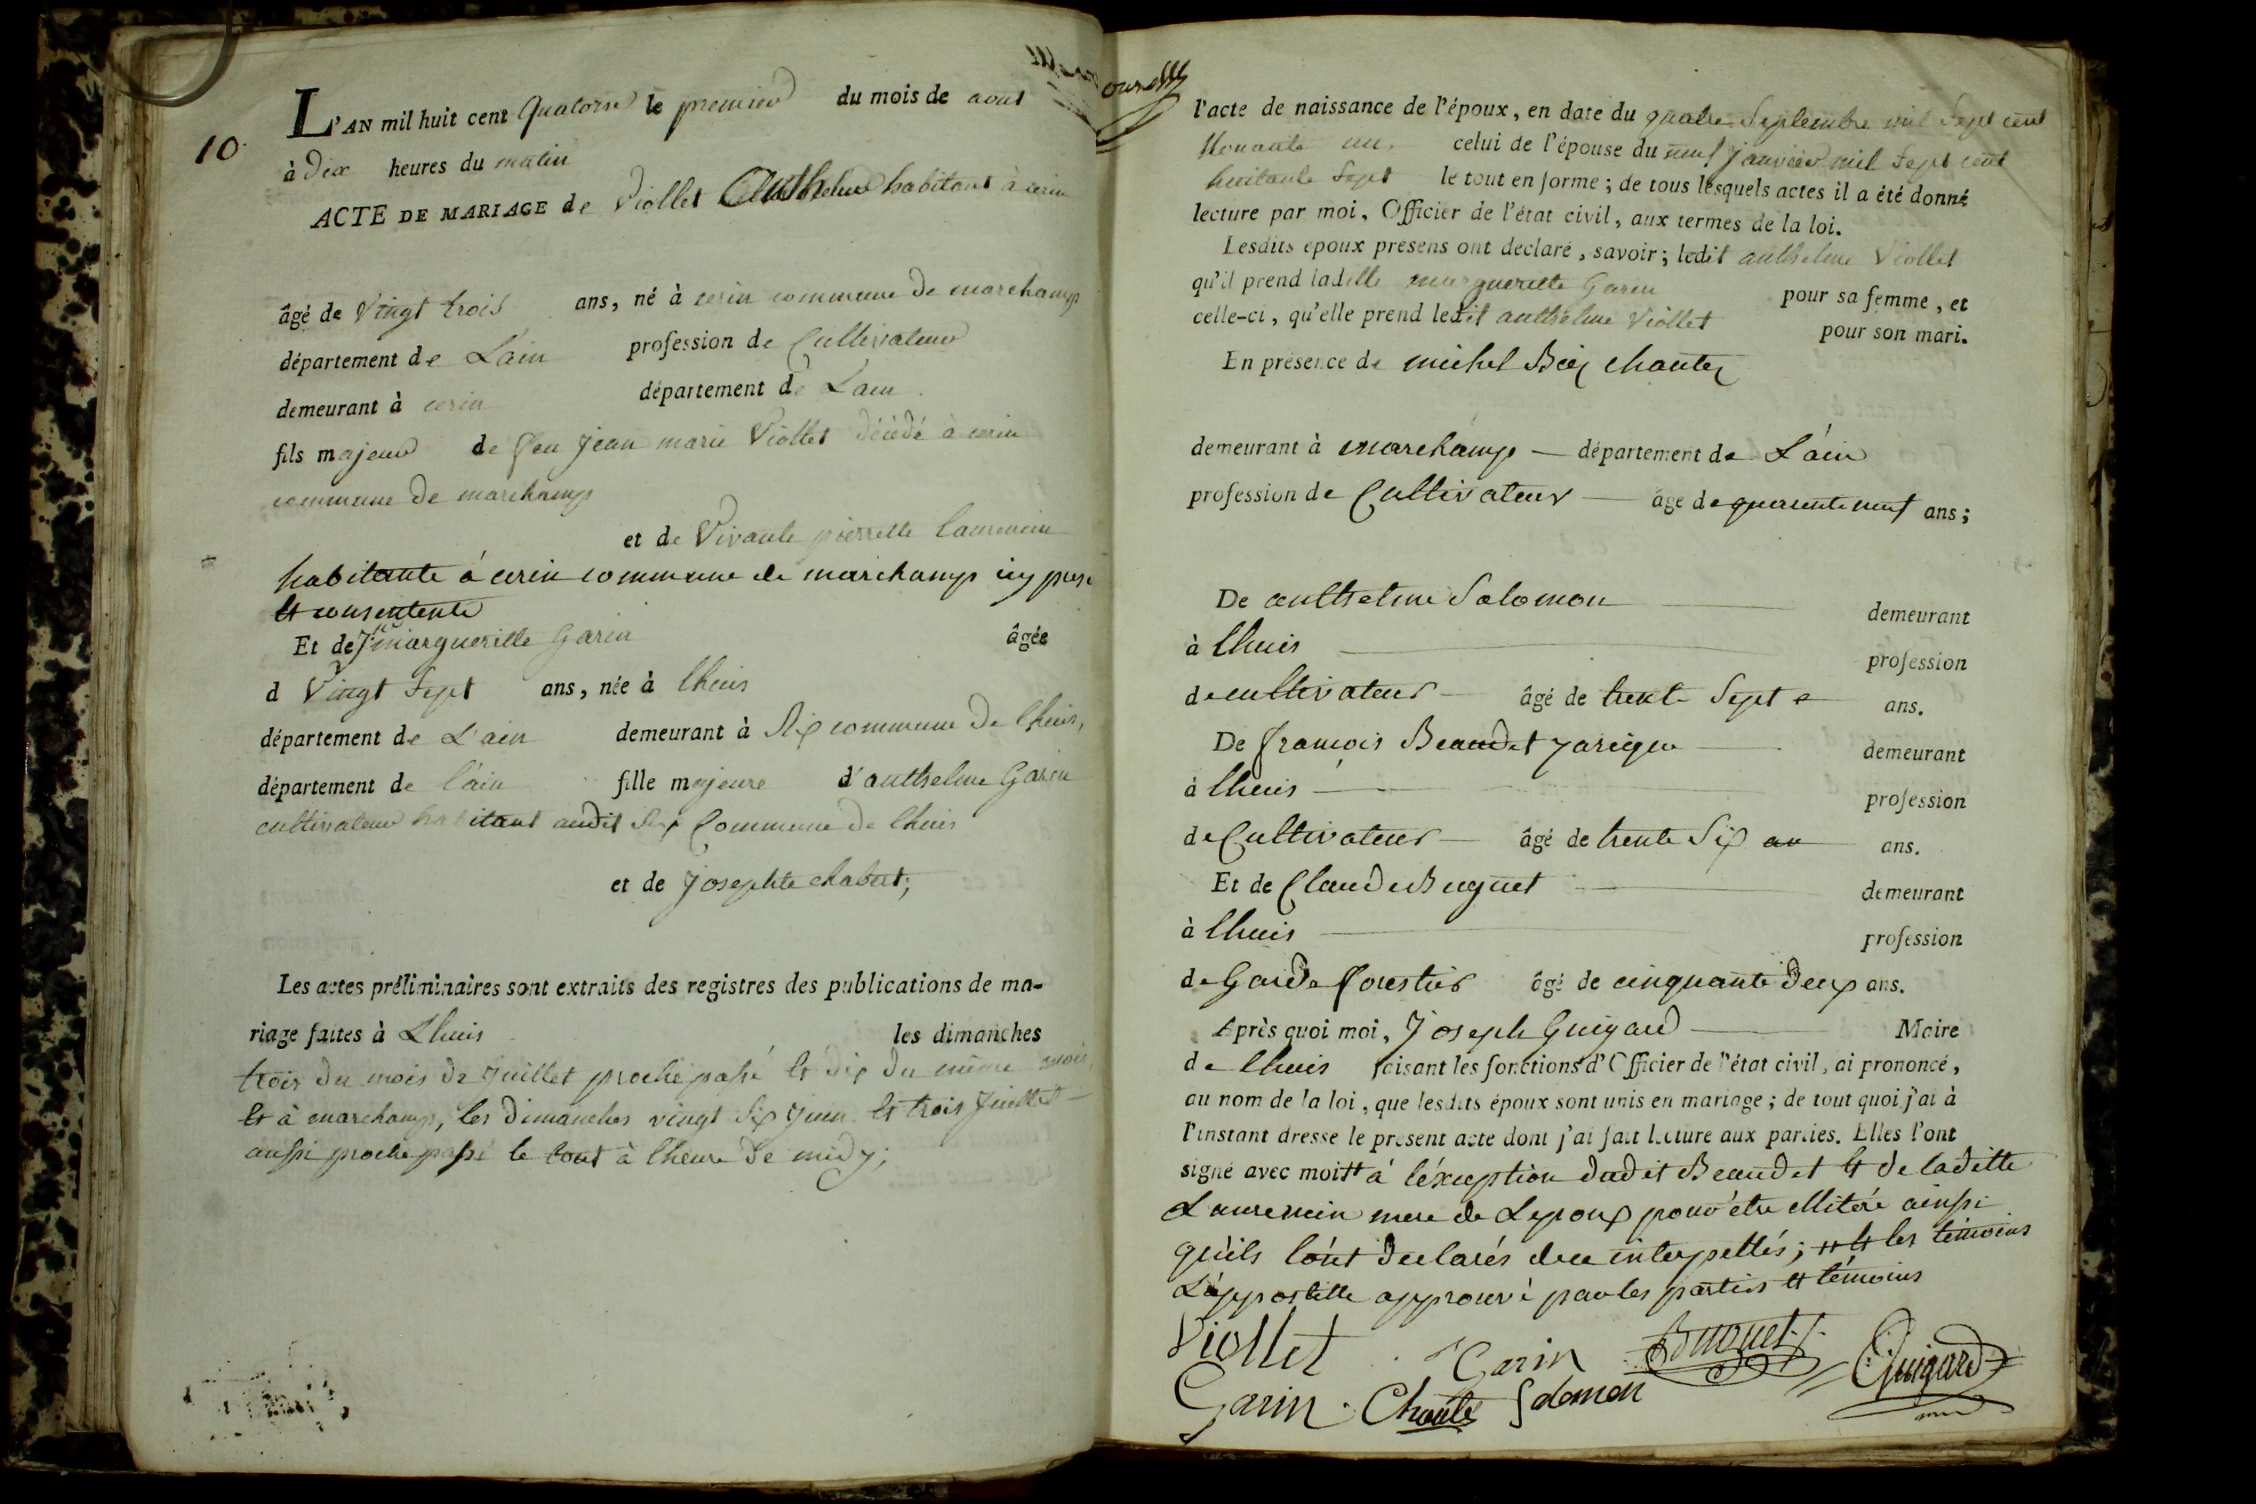 10.
L'AN mil huit cent quatorse le premier du mois de aout
à dix heures du matin
ACTE DE MARIAGE de Viollet Anthelme habitant à cerin
âgé de Vingt trois ans, né à cerin commune de marchamp
département de L'ain profession de Cultivateur
demeurant à cerin département de L'ain
fils majeur de feu Jean marie Viollet décédé à cerin
commune de marchamp
et de Vivante pierrette Laurencin
habitante à cerin commune de marchamp icy pres
et consentente
Et de margueritte Garin âgée
d Vingt Sept ans, née à lhuis
département de L'ain demeurant à Rix commune de lhuis,
département de l'ain fille majeure d'anthelme Garin
cultivateur habitant audit Rix Commune de lhuis
et de Josephte chabert;
Les actes préliminaires sont extraits des registres des publications de ma-
riage faites à Lhuis les dimanches
trois du mois de Juillet proche passé et dix du même mois,
et à marchamp, les dimanches vingt six juin et trois juillet
aussi proche passé le tout à lheure de midy;
l'acte de naissance de l'époux, en date du quatre Septembre mil Sept cent
Nonante un, celui de l'épouse du neuf janvier mil Sept cent
huitante Sept le tout en forme; de tous lesquels actes il a été donné
lecture par moi, Officier de l'état civil, aux termes de la loi.
Lesdits epoux présens ont déclaré, savoir; ledit anthelme Viollet
qu'il prend laditte marguerette Garin pour sa femme, et
celle-ci, qu'elle prend ledit anthelme Viollet pour son mari.
En présence de michel chante
demeurant à marchamp département de L'ain
profession de Cultivateur âge de quarente neuf ans;
De anthelme Salomon demeurant
à lhuis profession
de cultivateur âgé de trente Sept ans.
De francois Beaudet demeurant
à lhuis profession
de Cultivateur âgé de trente Six ans.
Et de Claude Buguet demeurant
à lhuis profession
de Garde forestier âgé de cinquante deux ans.
Après quoi moi, Joseph Guigard Maire
de lhuis faisant les fonctions d'Officier de l'état civil, ai prononcé,
au nom de la loi, que lesdits époux sont unis en mariage; de tout quoi j'ai à
l'instant dressé le présent acte dont j'ai fait lecture aux parties. Elles l'ont
signé avec moi à léxception dudit Beaudet et de laditte
Laurencin mere de Lepoux pour être illitéré ainsi
qu'ils l'ont declarés de ce interpellés; et les témoins
L'appostille approuvé par les parties et témoins
Viollet Garin Buguet Guigard
Garin Chante Salomon